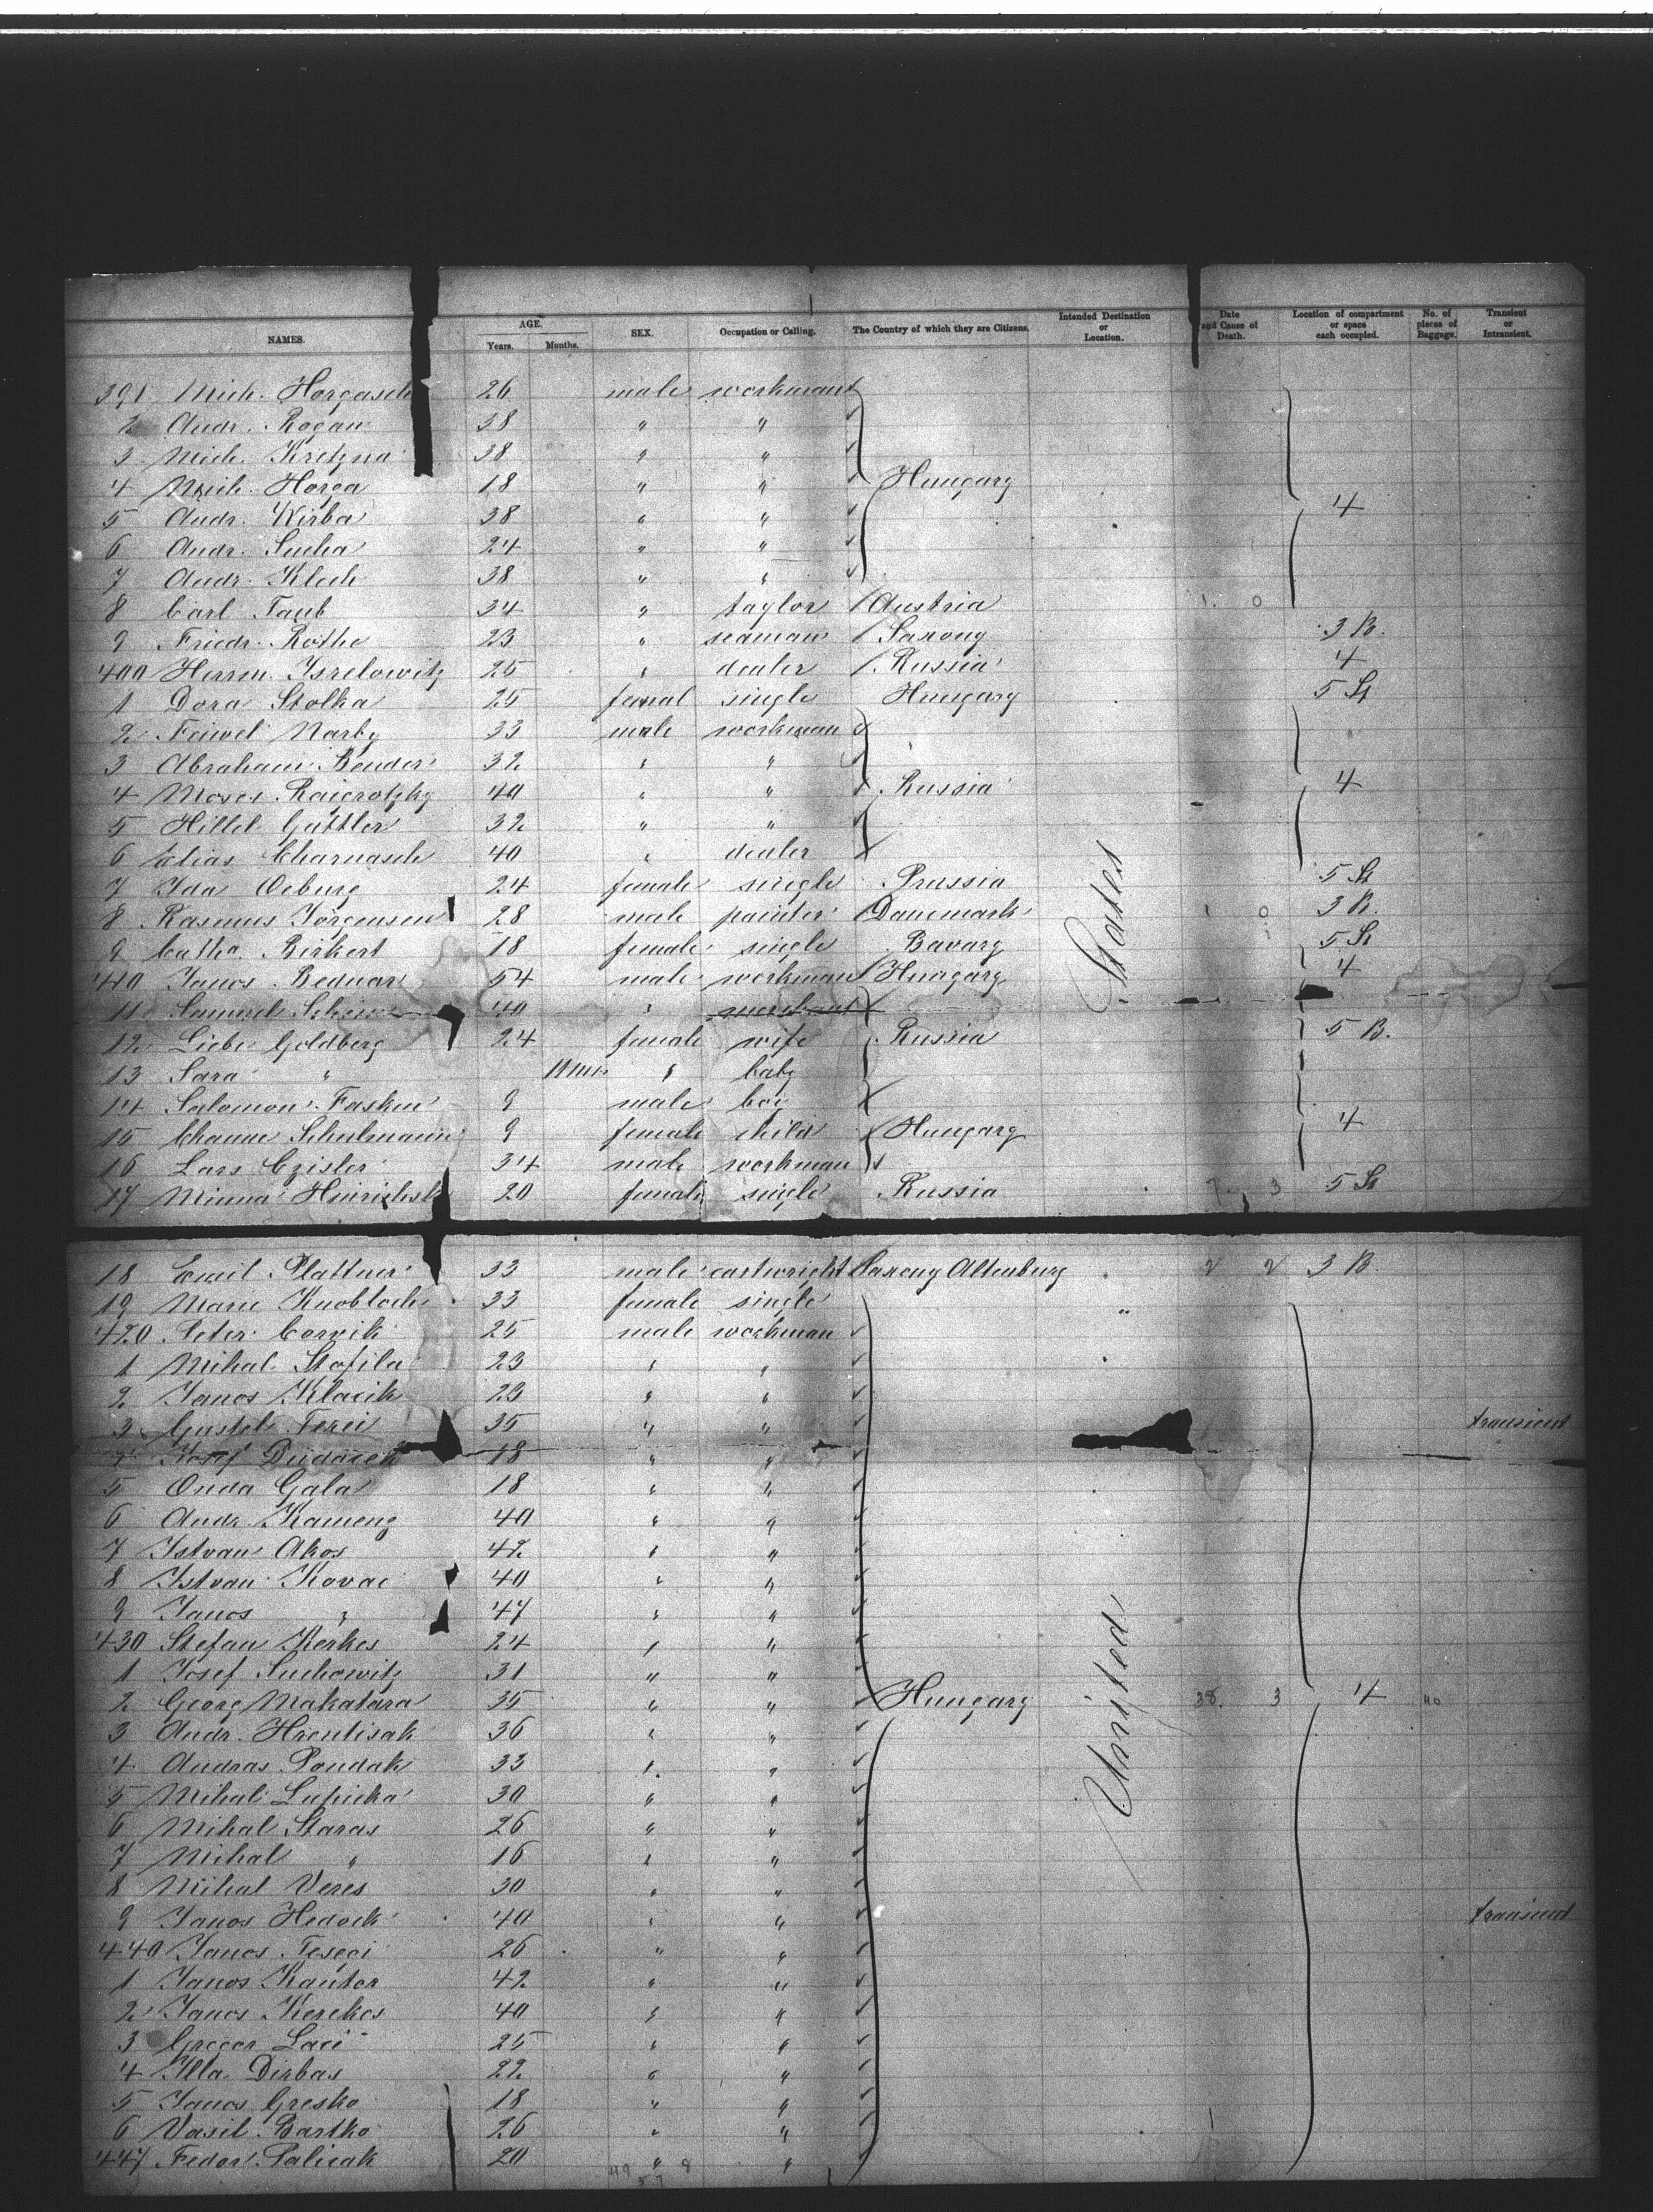 NAMES. AGE. Years. Months. SEX. Occupation or Calling. The Country of which they are Citizens. Intended Destination or Location. Date and Cause of Death. Location of compartment or space each occupied. No. of pieces of Baggage. Transient or Intransient.
391 Mich. Horgasch 26 male workman
2 Andr. Rogan 38 " "
3 Mich. Kretzna 38 " "
4 Mich. Horga 18 " " Hungary
5 Andr. Wirba 38 " " 4
6 Andr. Sucha 24 " "
7 Andr. Klech 38 " "
8 Carl Taub 34 " taylor Austria 1. 0
9 Friedr. Rothe 23 " seaman Saxony 3 B.
400 Herrm. Isrelowitz 25 " dealer Russia 4
1 Dora Stolka 25 femal single Hungary 5 St
2 Feiwel Narby 33 male workman
3 Abraham Bender 32 " "
4 Moses Raigrotzky 40 " " Russia 4
5 Hillel Gattler 32 " "
6 Elias Charnasch 40 " dealer
7 Ida Oeburg 24 female single Prussia 5 St
8 Rasmus Jörgensen 28 male painter Danemark 1 0 3 B.
9 Catha. Birkert 18 female single Bavary 5 St
410 Janos Bednar 54 male workman Hungary 4
11 Samuel 40 "
12 Liebe Goldberg 24 female wife Russia 5 B.
13 Sara " 11 mos " baby
14 Salomon Faskin 9 male boi
15 Channe Schulmann 9 female child Hungary 4
16 Lars Czisler 34 male workman
17 Minna 20 female single Russia 7. 3 5 St
States
18 Emil Plattner 33 male cartwright Saxony Altenburg 2 2 3 B.
19 Marie Knobloch 33 female single "
420 Peter Corvik 25 male workman
1 Mihal Stofila 23 " "
2 Janos Klacik 23 " "
3 Gustel Ferei 35 " " transient
Josef Dudacek 18 " "
5 Onda Gala 18 " "
6 Andr. Kameny 40 " "
7 Istvan Akos 42 " "
8 Istvan Kovac 40 " "
9 Janos " 47 " "
430 Stefan Kerkes 24 " "
1 Josef Suchowitz 31 " "
2 Georg Makatara 35 " " Hungary 38. 3 4 40
3 Andr. Hrentisak 36 " "
4 Andras Pondak 33 " "
5 Mihal Lupicka 30 " "
6 Mihal Staras 26 " "
7 Mihal " 16 " "
8 Mihal Veres 30 " "
9 Janos Hedock 40 " " transient
440 Janos Fesegi 26 " "
1 Janos Kantor 42 " "
2 Janos Kerekes 40 " "
3 Gregor Laci 25 " "
4 Illa Dirbas 22 " "
5 Janos Gresko 18 " "
6 Vasil Bartko 26 " "
447 Fedor Palicak 20 " "
United
49 8
57